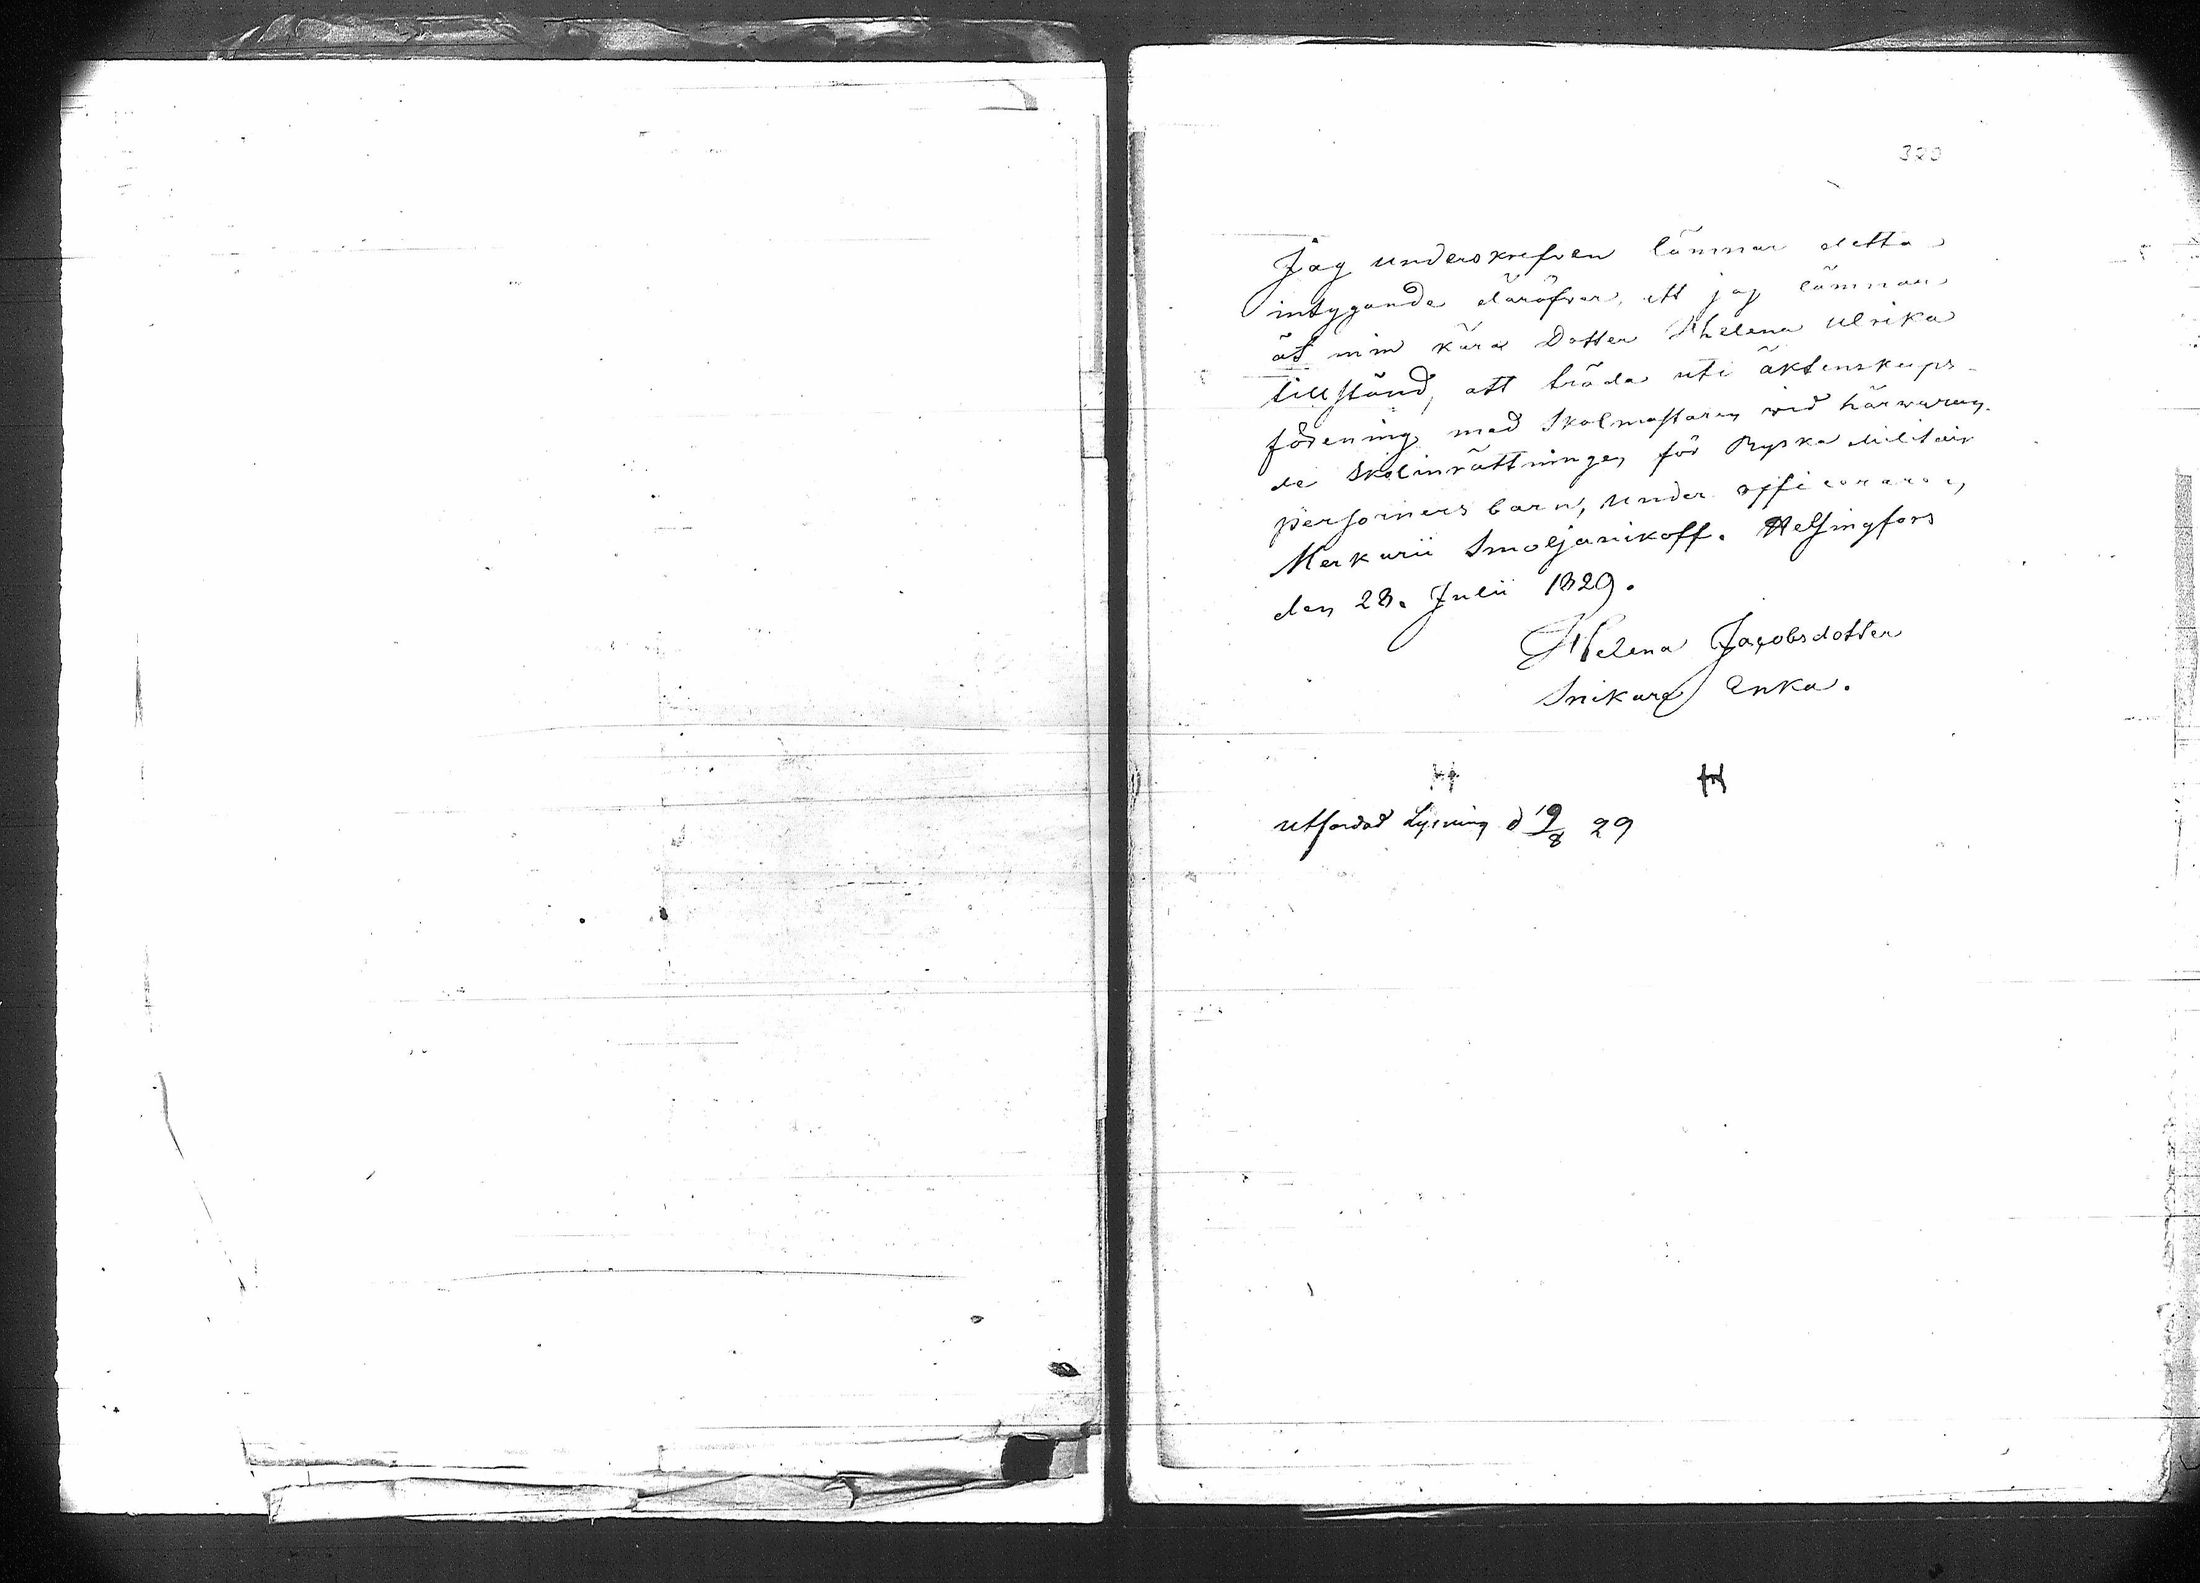 320
Jag underskrefven lämnar detta
intygande däröfver, att jag lämnar
åt min kära Dotter Helena Ulrika
tillstånd, att träda uti äktenskaps-
förening med Skolmästaren wid härwaran-
de Skolinrättningen för Ryska Militair
personers barn, under officeraren,
Merkurii Smoljanikoff. Helsingfors
den 28. Julii 1829.
Helena Jacobsdotter
Snikare Enka.
H H
utfärdad Lysning d 19/8 29